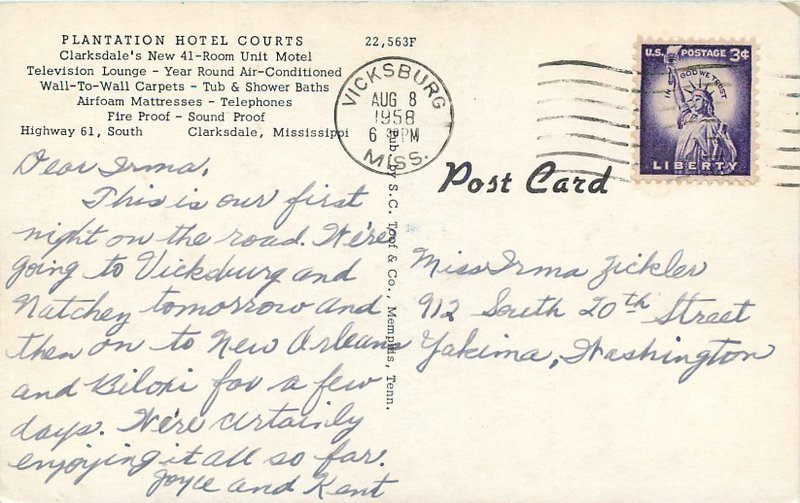 PLANTATION HOTEL COURTS 22,563F
Clarksdale's New 41-Room Unit Motel
Television Lounge - Year Round Air-Conditioned
Wall-To-Wall Carpets - Tub & Shower Baths
Airfoam Mattresses - Telephones
Fire Proof - Sound Proof
Highway 61, South Clarksdale, Mississippi
VICKSBURG
AUG 8
1958
6 30PM
MISS.
U.S. POSTAGE 3¢
IN GOD WE TRUST
LIBERTY
Post Card
Pub. by S. C. Toof & Co., Memphis, Tenn.
Dear Irma,
This is our first
night on the road. We're
going to Vicksburg and
Natchey tomorrow and
then on to New Orleans
and Biloxi for a few
days. We're certainly
enjoying it all so far.
Joyce and Kent
Miss Irma Zickler
912 South 20th Street
Yakima, Washington